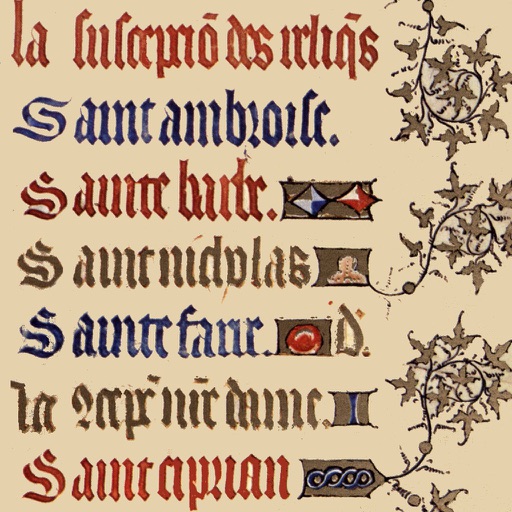 la suscepciō des reliq̄s
Saint ambroise.
Sainte barbe.
Saint nicholas
Sainte fare. d.
la ꝯcepc̄ nr̄e dame.
Saint ciprian